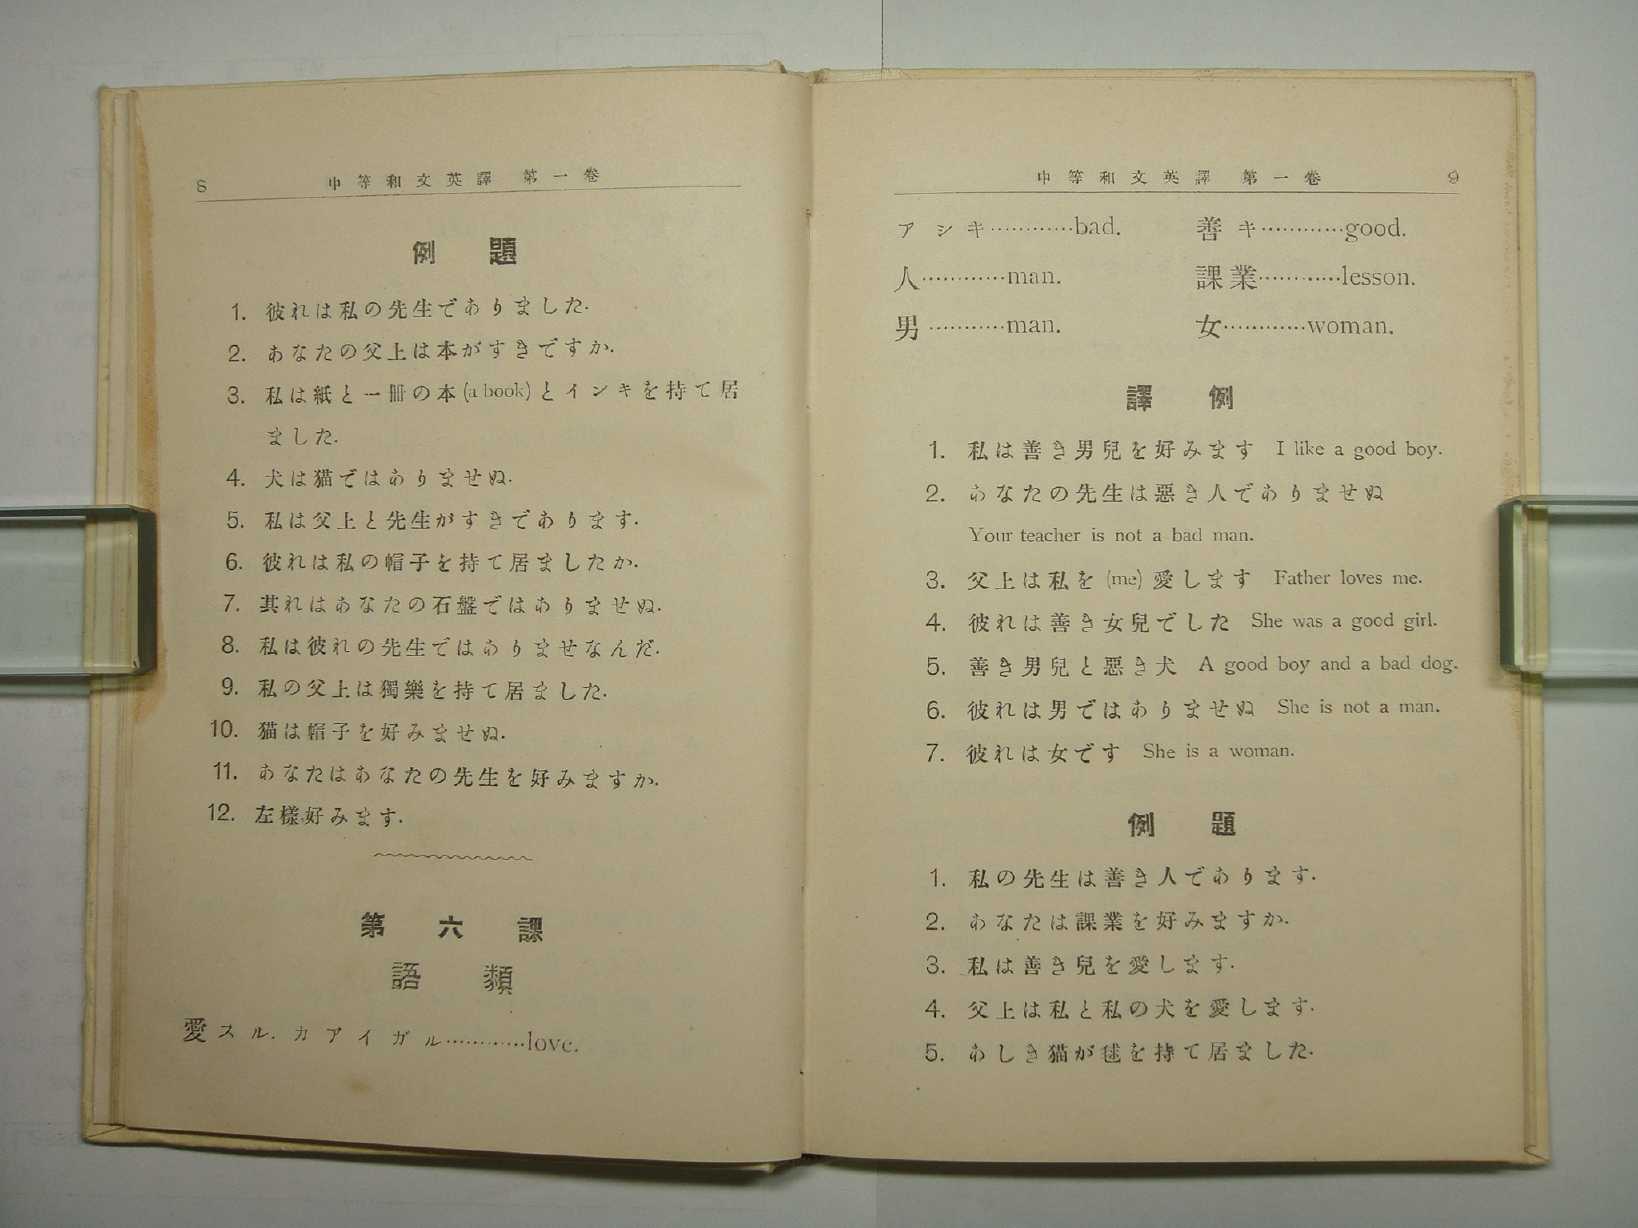 8 中等和文英譯 第一卷
例題
1. 彼れは私の先生でありました.
2. あなたの父上は本がすきですか.
3. 私は紙と一冊の本(a book)とインキを持て居
ました.
4. 犬は猫ではありませぬ.
5. 私は父上と先生がすきであります.
6. 彼れは私の帽子を持て居ましたか.
7. 其れはあなたの石盤ではありませぬ.
8. 私は彼れの先生ではありませなんだ.
9. 私の父上は獨樂を持て居ました.
10. 猫は帽子を好みませぬ.
11. あなたはあなたの先生を好みますか.
12. 左樣好みます.
第六課
語類
愛スル. カアイガル…………love.
中等和文英譯 第一卷 9
アシキ…………bad. 善キ…………good.
人…………man. 課業…………lesson.
男…………man. 女…………woman.
譯例
1. 私は善き男兒を好みます I like a good boy.
2. あなたの先生は惡き人でありませぬ
Your teacher is not a bad man.
3. 父上は私を (me) 愛します Father loves me.
4. 彼れは善き女兒でした She was a good girl.
5. 善き男兒と惡き犬 A good boy and a bad dog.
6. 彼れは男ではありませぬ She is not a man.
7. 彼れは女です She is a woman.
例題
1. 私の先生は善き人であります.
2. あなたは課業を好みますか.
3. 私は善き兒を愛します.
4. 父上は私と私の犬を愛します.
5. あしき猫が毬を持て居ました.